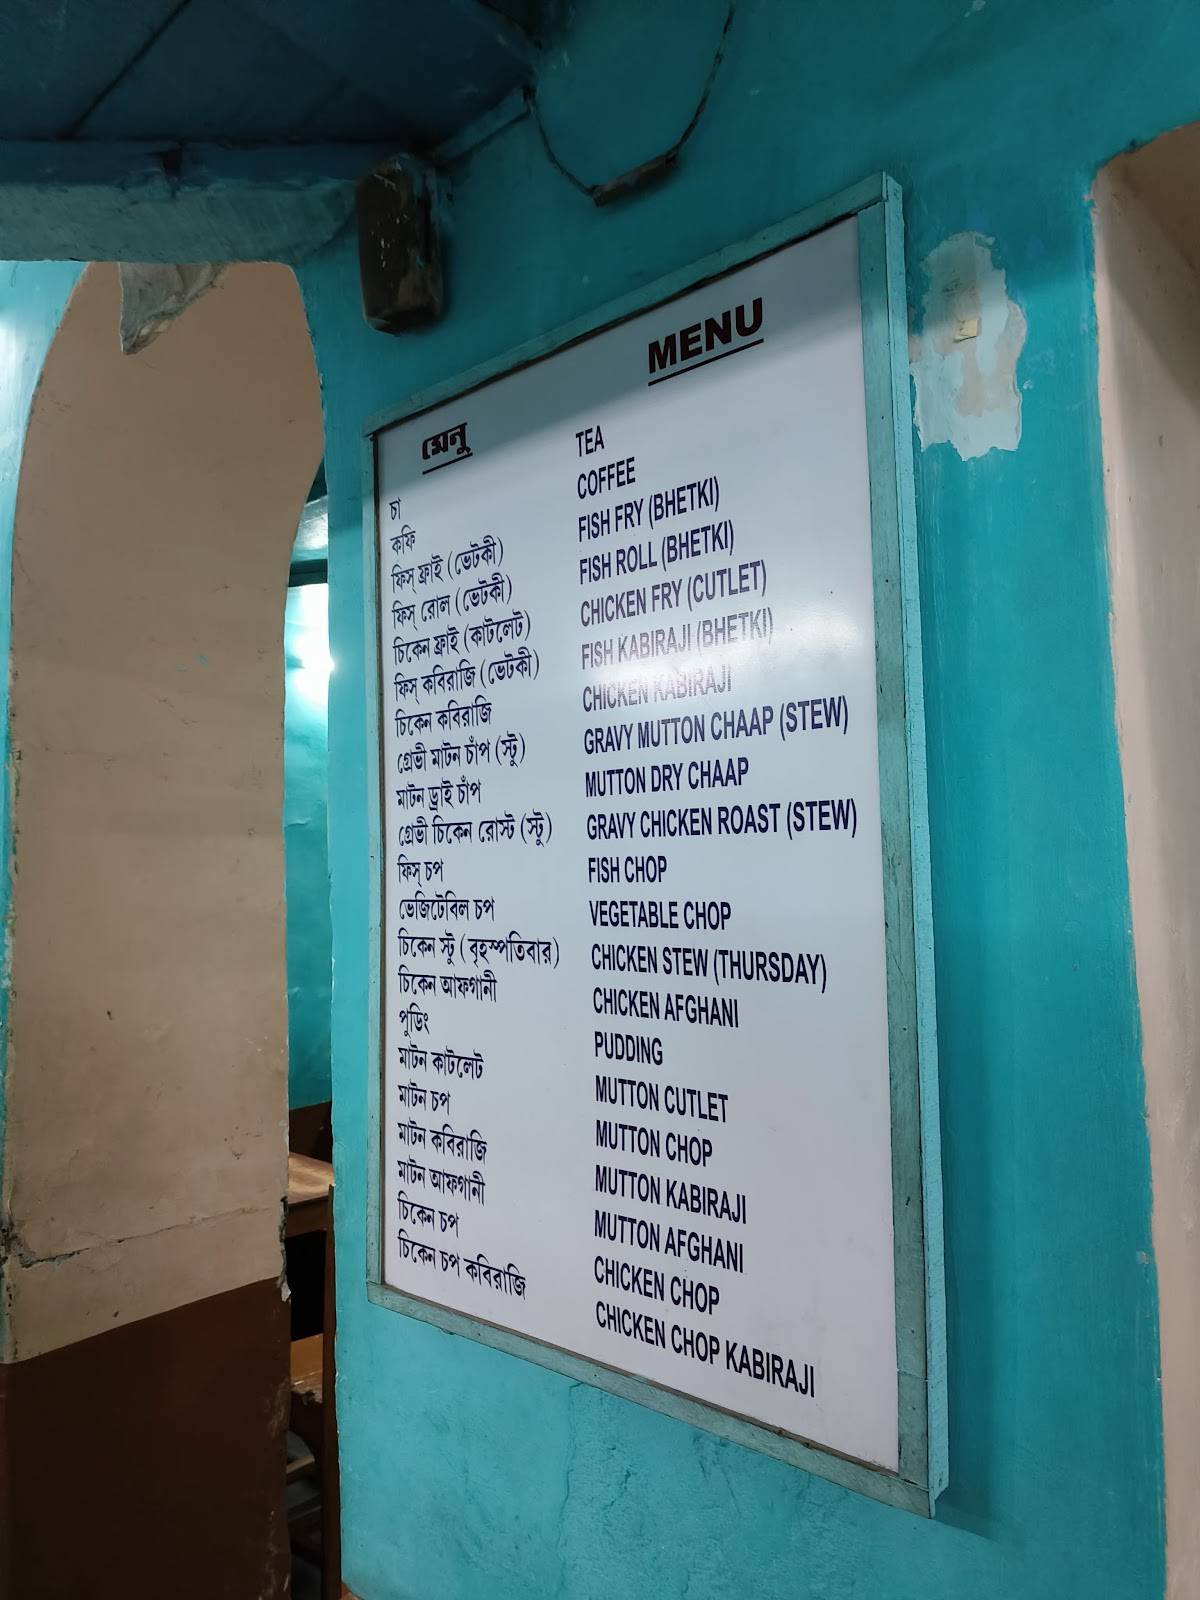 মেনু
চা
কফি
ফিস্ ফ্রাই (ভেটকী)
ফিস্ রোল (ভেটকী)
চিকেন ফ্রাই (কাটলেট)
ফিস্ কবিরাজি (ভেটকী)
চিকেন কবিরাজি
গ্রেভী মাটন চাঁপ (স্টু)
মাটন ড্রাই চাঁপ
গ্রেভী চিকেন রোস্ট (স্টু)
ফিস্ চপ
ভেজিটেবিল চপ
চিকেন স্টু (বৃহস্পতিবার)
চিকেন আফগানী
পুডিং
মাটন কাটলেট
মাটন চপ
মাটন কবিরাজি
মাটন আফগানী
চিকেন চপ
চিকেন চপ কবিরাজি
MENU
TEA
COFFEE
FISH FRY (BHETKI)
FISH ROLL (BHETKI)
CHICKEN FRY (CUTLET)
FISH KABIRAJI (BHETKI)
CHICKEN KABIRAJI
GRAVY MUTTON CHAAP (STEW)
MUTTON DRY CHAAP
GRAVY CHICKEN ROAST (STEW)
FISH CHOP
VEGETABLE CHOP
CHICKEN STEW (THURSDAY)
CHICKEN AFGHANI
PUDDING
MUTTON CUTLET
MUTTON CHOP
MUTTON KABIRAJI
MUTTON AFGHANI
CHICKEN CHOP
CHICKEN CHOP KABIRAJI